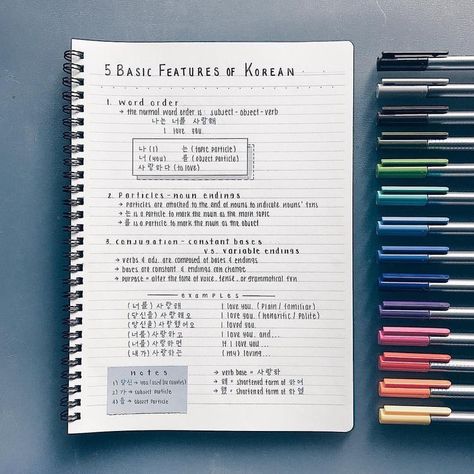 5 BASIC FEATURES OF KOREAN
1. word order
→ the normal word order is: subject-object-verb
나는 너를 사랑해
I love you.
나 (I) 는 (topic particle)
너 (you) 를 (object particle)
사랑하다 (to love)
2. Particles - noun endings
→ particles are attached to the end of nouns to indicate nouns' fxns
→ 는 is a particle to mark the noun as the main topic
→ 를 is a particle to mark the noun as the object
3. conjugation - constant bases
vs. variable endings
→ verbs & adj. are composed of bases & endings
→ bases are constant & endings can change
→ purpose = alter the fxns of voice, tense, or grammatical fxn
examples
(너를) 사랑해 I love you. (Plain / familiar)
(당신을) 사랑해요 I love you. (Honorific / Polite)
(당신을) 사랑했어요 I loved you.
(너를) 사랑하고 I love you, and...
(너를) 사랑하면 If I love you...
(내가) 사랑하는 (my) loving...
notes
1) 당신 → you (used by couples)
2) 가 → subject particle
3) 을 → object particle
→ verb base = 사랑하
→ 해 = shortened form of 하여
→ 했 = shortened form of 하였